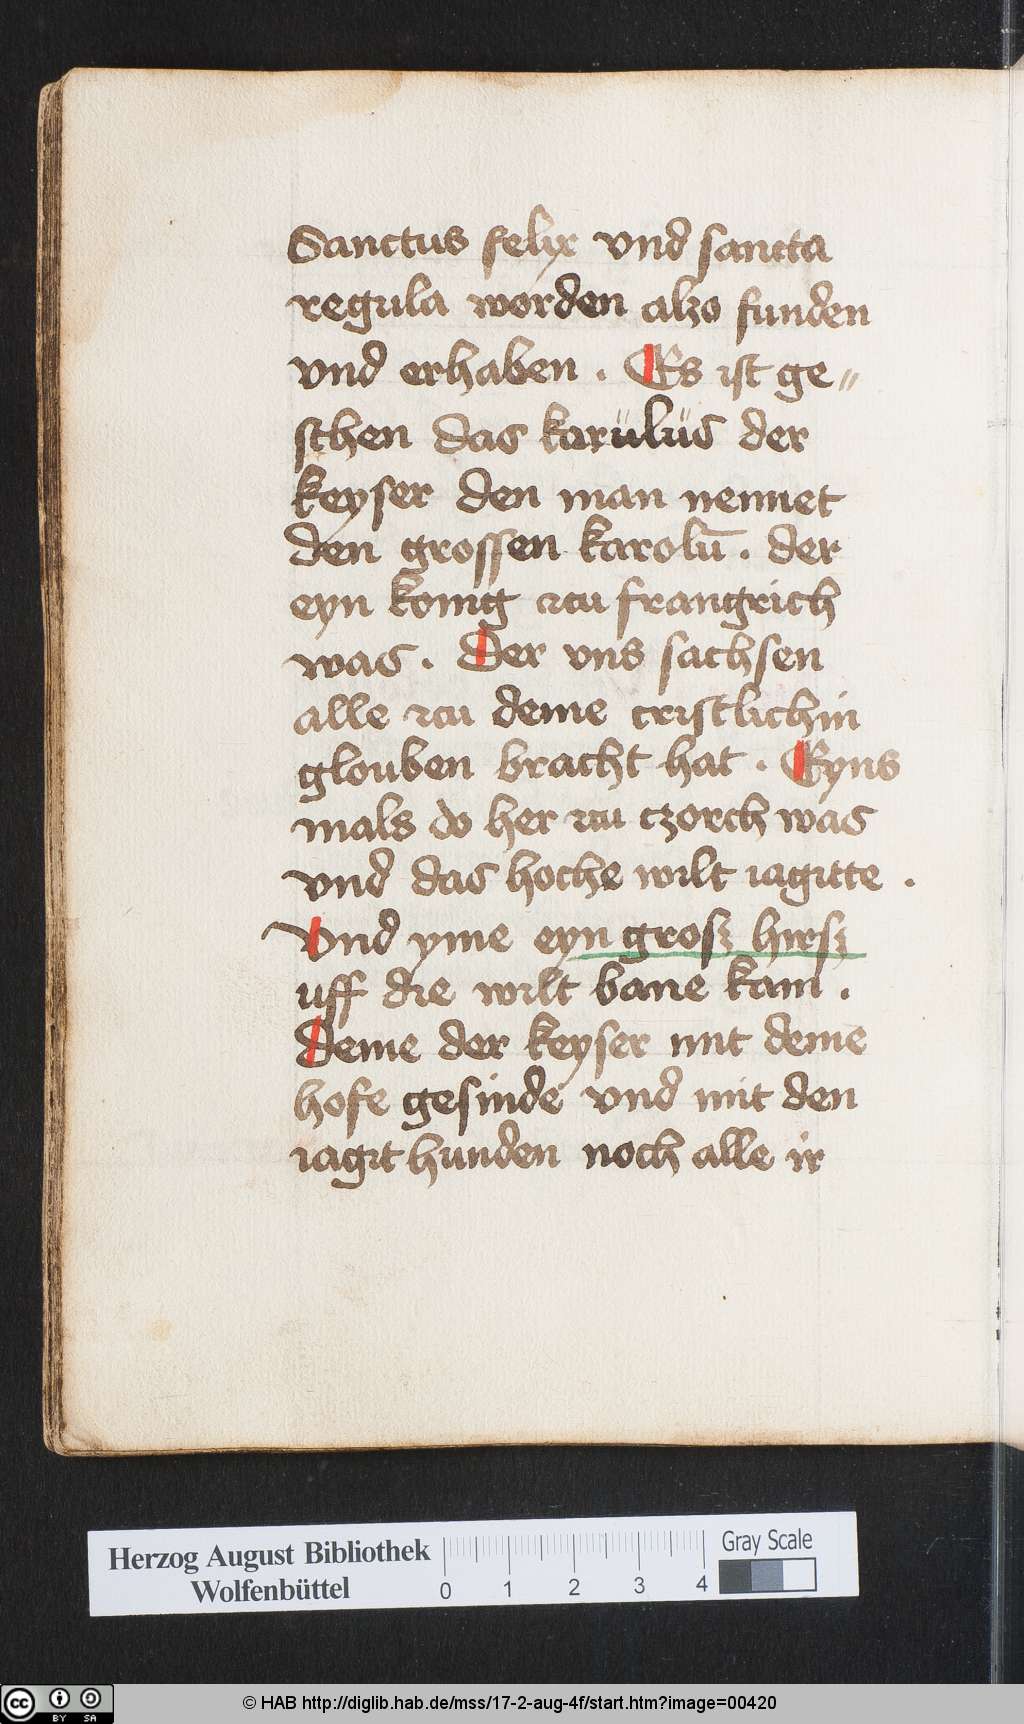 Sanctus felix vnd sancta
regula worden alzo funden
vnd erhaben . Es ist ge„
schen das karülüs der
keyser den man nennet
den grossen karolū . der
eyn konig zcu frangrich
was . Der vns sachsen
alle zcu deme cristlichin
glouben bracht hat . Eyns
mals do her zcu czorch was
vnd das hoche wilt iagitte .
Vnd yme eyn grosz hirsz
uff die wilt bane kam .
Deme der keyser mit deme
hofe gesinde vnd mit den
iagit hunden noch alle ir
Herzog August Bibliothek
Wolfenbüttel
0 1 2 3 4
Gray Scale
cc BY SA
© HAB http://diglib.hab.de/mss/17-2-aug-4f/start.htm?image=00420